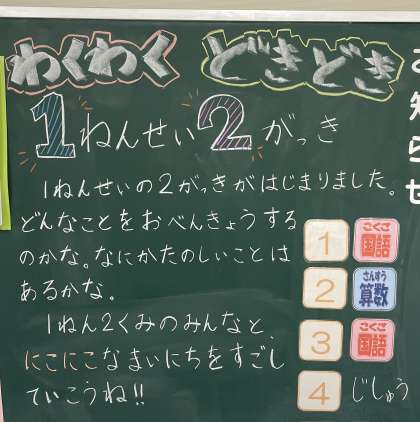 わくわく どきどき
1ねんせい2がっき
1ねんせいの2がっきがはじまりました。
どんなことをおべんきょうする
のかな。なにかたのしいことは
あるかな。
1ねん2くみのみんなと、
にこにこなまいにちをすごし
ていこうね!!
1 こくご 国語
2 さんすう 算数
3 こくご 国語
4 じしゅう
お知らせ